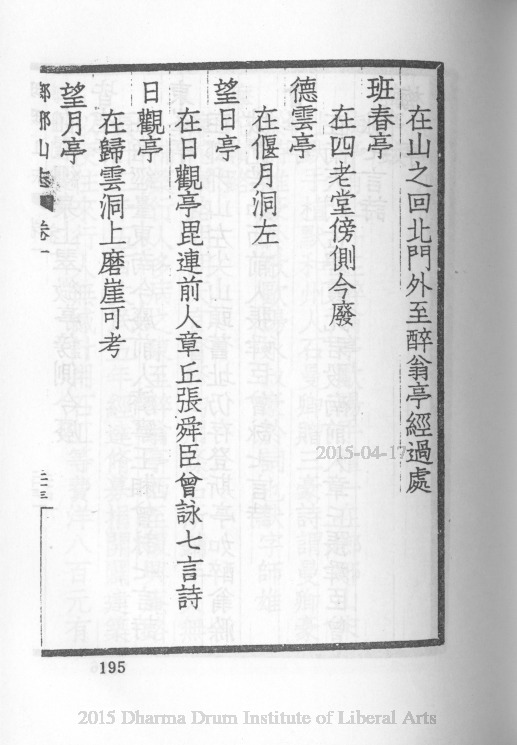 在山之回北門外至醉翁亭經過處
班春亭
在四老堂傍側今廢
德雲亭
在偃月洞左
望日亭
在日觀亭毘連前人章丘張舜臣曾詠七言詩
日觀亭
在歸雲洞上磨崖可考
望月亭
山志 卷一
195
2015-04-17
2015 Dharma Drum Institute of Liberal Arts